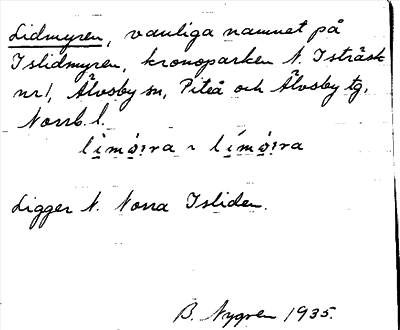 Lidmyren, vanliga namnet på
Islidmyren, kronoparken N. Isträsk
nr 1, Älvsby sn, Piteå och Älvsby tg,
Norrb. l.
Ligger N. Norra Isliden.
B. Nygren 1935.